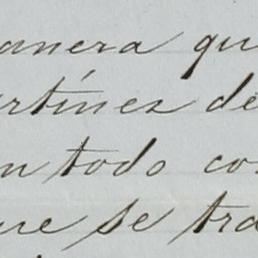 anera qu
artínez de
n todo con
ue se tra